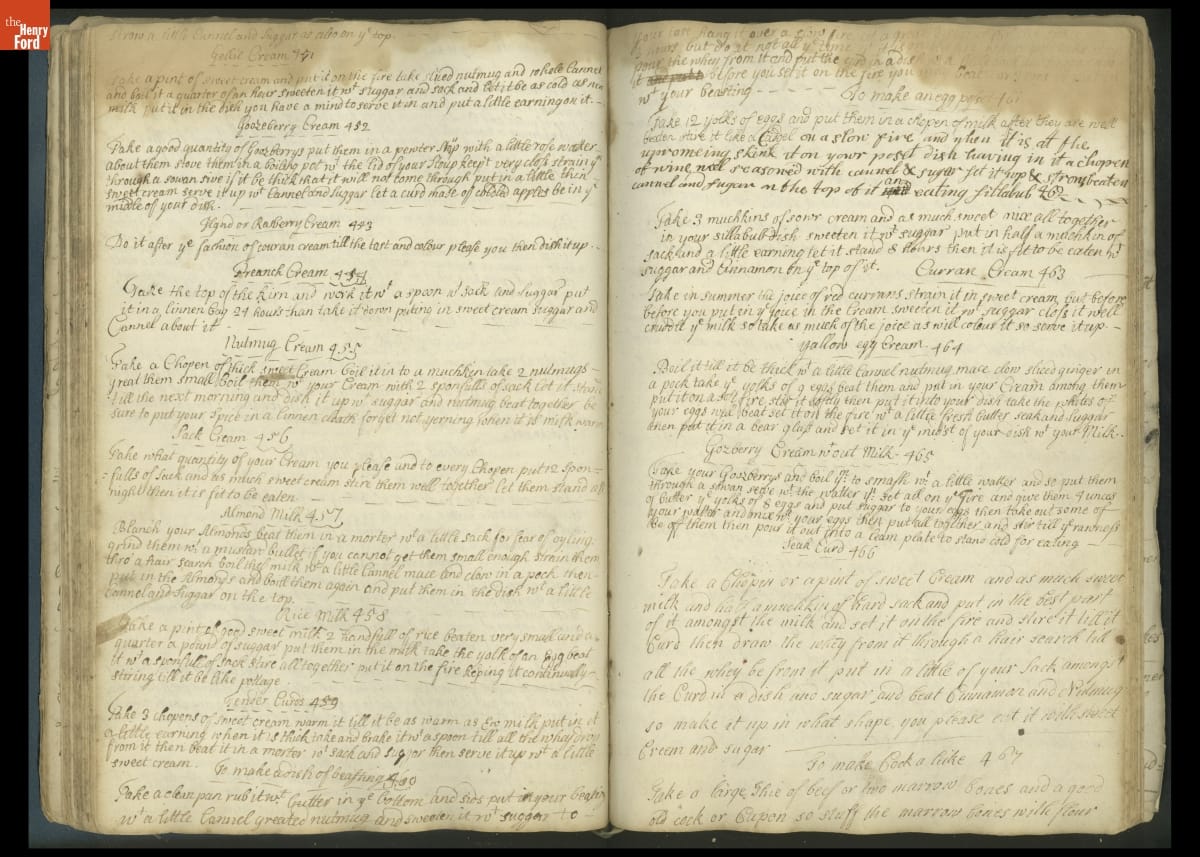 the
Henry
Ford
strow a little Cannel and Suggar as also on ye top.
Gellie Cream 451
Take a pint of sweet cream and put it on the fire take slised nutmug and whole Cannel
and boil it a quarter of an hour sweeten it wt suggar and sack and let it be as cold as
milk put it in the dish you have a mind to serve it in and put a little earning on it.
Goozeberry Cream 452
Take a good quantity of Gozberrys put them in a pewter with a little rose watter
about them stove them in a boiling pot wt the lid of your Stoup kept very closs strain ym
through a sowan sive if it be thick that it will not come through put in a little thin
sweet cream serve it up wt Cannel and Suggar let a curd made of codled apples be in ye
middle of your dish
or Rasberry Cream 453
Do it after ye fashion of couran cream till the tast and colour please you then dish it up.
Freanck Cream 454
Take the top of the kirn and work it wt a spoon wt sack and suggar put
it in a linnen bag 24 hours than take it down puting in sweet cream suggar and
Cannel about it
Nutmug Cream 455
Take a Chopen of thick sweet Cream boil it in to a muchken take 2 nutmugs
great them small boil them wt your Cream with 2 sponfulls of sack let it stand
till the next morning and dish it up wt suggar and nutmug beat together be
sure to put your spice in a linnen cloath forget not yerning when it is milk warm
Sack Cream 456
Take what quantity of your Cream you please and to every Chopen put 12 spon=
=fulls of sack and as much sweet cream stire them well together let them stand all
night then it is fit to be eaten
Almond Milk 457
Blanch your Almonds beat them in a morter wt a little sack for fear of oyling
grind them wt a mustart bullet if you cannot get them small enough strain them
thro a hair search boil the milk wt a little Cannel mace and clow in a pock then
put in the Almonds and boill them again and put them in the dish wt a little
cannel and suggar on the top.
Rice Milk 458
Take a pint of good sweet milk 2 handfull of rice beaten very small and a
quarter a pound of suggar put them in the milk take the yolk of an Egg beat
it wt a sponfull of sack stire all together put it on the fire keeping it continually
stiring till it be like pottage
Tender Curds 459
Take 3 chopens of sweet cream warm it till it be as warm as milk put in it
a little earning when it is thick take and brake it wt a spoon till all the whay
from it then beat it in a morter wt sack and sugar then serve it up wt a little
sweet cream.
To make a dish of beasting 460
Take a clean pan rub it wt butter in ye bottom and sids put in your beasting
wt a little Cannel greated nutmug and sweeten it wt suggar to
your tast hang it over a slow fire
hours but do at not all ye time
pour the whey from it and put the
it before you set it on the fire you
wt your beasting
To make an egg posset 461
Take 12 yolks of eggs and put them in a chopen of milk after they are well
beaten stire it like a Cadel on a slow fire and when it is at the
upcomeing skink it on your poset dish having in it a chopen
of wine well seasoned with cannel & sugar set it up & strow beaten
cannel and sugar on the top of it an eating sillabub 462
Take 3 muchkins of sowr cream and as much sweet mix all together
in your sillabub dish sweeten it wt suggar put in half a muchkin of
sack and a little earning let it stand 8 hours then it is fit to be eaten wt
suggar and Cinnamon on ye top of it.
Curran Cream 463
Take in summer the joice of red currans strain it in sweet cream but before
before you put in ye joice in the cream sweeten it wt suggar closs it well
ye milk so take as much of the joice as will colour it so serve it up
Yallow egg Cream 464
Boil it till it be thick wt a little cannel nutmug mace clow sliced ginger in
a pock take ye yolks of 9 eggs beat them and put in your Cream among them
put it on a fire stir it softly then put it into your dish take the whites of
your eggs well beat set it on the fire wt a little fresh butter seak and suggar
then put it in a bear glass and set it in ye midst of your dish wt your Milk.
Gozberry Cream wtout Milk 465
Take your Gozberrys and boil ym to smash wt a little watter and so put them
through a sowan seive wt the watter set all on ye fire and give them 4 unces
of butter ye yolks of 8 eggs and put suggar to your eggs then take out some of
your watter and mix wt your eggs then put all together and stir till ye rawness
be off them then pour it out into a leam plate to stand cold for eating
Seak Curd 466
Take a Chopen or a pint of sweet Cream and as much sweet
milk and half a muchkin of hard sack and put in the best part
of it amongst the milk and set it on the fire and stire it till it
Curd then draw the whey from it through a hair search till
all the whey be from it put in a little of your Sack amongst
the Curd in a dish and sugar and beat Cinnamon and Nutmug
so make it up in what shape you please eat it with sweet
Cream and sugar
To make Cock a like 467
Take a large of beef or two marrow bones and a good
old cock or Capon so stuff the marrow bones with flour